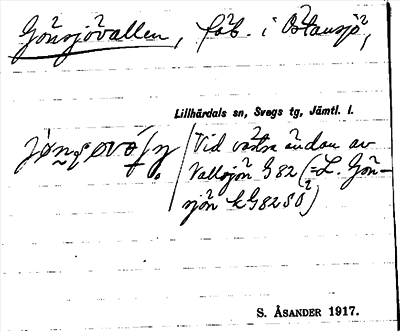 Gönsjövallen, fäb. i Östansjö,
Lillhärdals sn, Svegs tg, Jämtl. l.
Vid västra ändan av
Vallsjön G 82 (= L. Gön-
sjön k G8280)
S. ÅSANDER 1917.